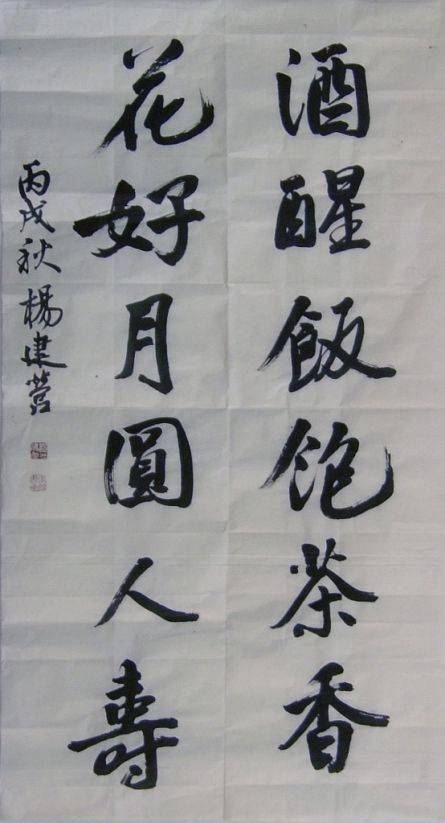 酒醒飯飽茶香
花好月圓人壽
丙戌秋楊建營